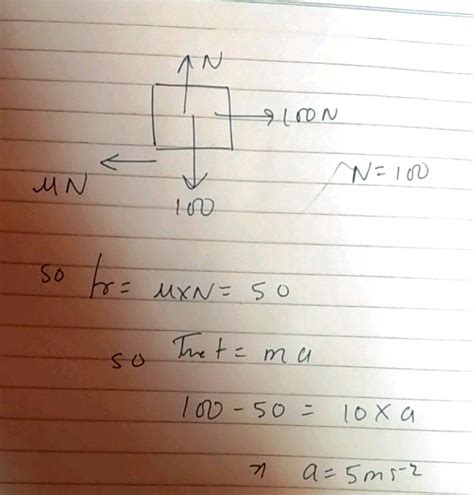 N
100N
μN
100
N = 100
so fr = μ×N = 50
so Fnet = ma
100 - 50 = 10 × a
a = 5ms⁻²